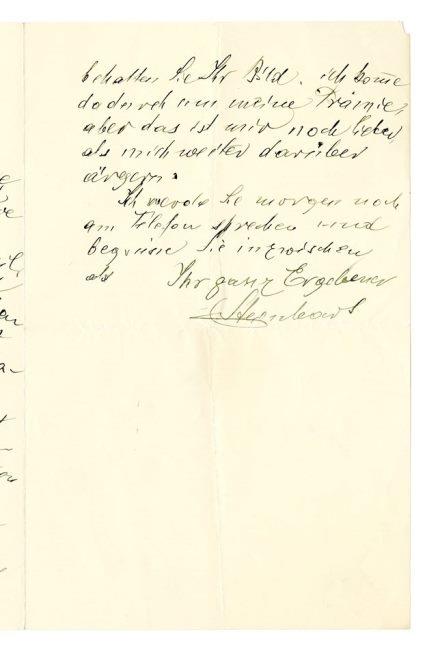 behalten Sie Ihr Bild. ich kom̄e
dadurch um meine Prämie,
aber das ist mir noch lieber
als mich weiter darüber
ärgern.
Ich werde Sie morgen noch
am Telefon sprechen und
begrüsse Sie inzwischen
als Ihr ganz Ergebener